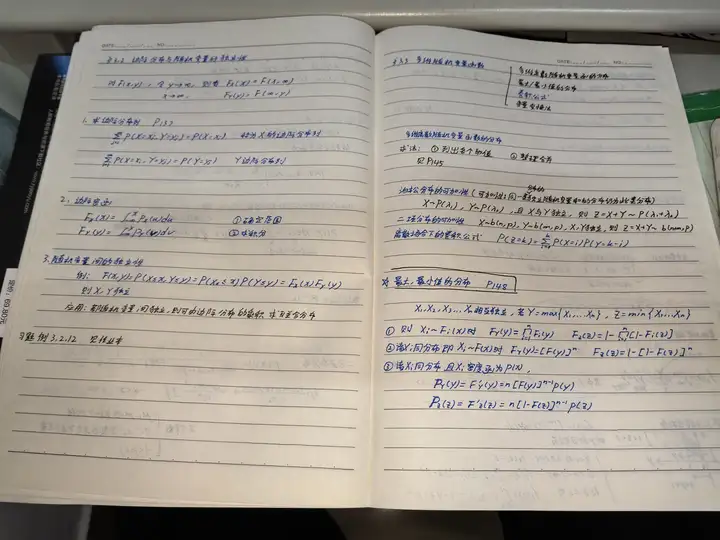 §3.2 边际分布与随机变量的独立性
对F(x,y)= 令 y→∞, 则有 Fx(x)=F(x,∞)
x→∞ FY(y)=F(∞,y)
1. 求边际分布列 P153
∑ P(X=xi, Y=yj)=P(X=xi) 称为X的边际分布列
∑ P(X=xi, Y=yj)=P(Y=yj) Y边际分布列
2. 边际密度
Fx(x)=∫ Px(u)du ①确定范围
FY(y)=∫ PY(v)dv ②求积分
3. 随机变量间的独立性
例: F(x,y)=P(X≤x, Y≤y)=P(X≤x)P(Y≤y)=Fx(x)FY(y)
则 X, Y独立
应用: 若随机变量间独立, 则可由边际分布的乘积 求
习题 例3.2.12 见作业本
§3.3 多维随机变量函数
多维离散随机变量函数的分布
最大/最小值的分布
卷积公式
变量变换法
多维离散随机变量函数的分布
方法: ①列出各个取值 ②整理合并
见P145
泊松分布的可加性 (可加性: 同一类分布的独立随机变量和的分布仍为此类分布)
X~P(λ₁), Y~P(λ₂), 且X与Y独立, 则 Z=X+Y~P(λ₁+λ₂)
二项分布的可加性 X~b(n,p), Y~b(m,p), X,Y独立, 则 Z=X+Y~b(n+m,p)
离散场合下的卷积公式 P(Z=k)=∑P(X=i)P(Y=k-i)
最大、最小值的分布 P148
X₁,X₂,X₃...Xn 相互独立, 若 Y=max{X₁,...Xn}, Z=min{X₁...Xn}
① 则 Xi~Fi(x)时 FY(y)=∏Fi(y) Fz(z)=1-∏[1-Fi(z)]
② 诸Xi同分布 即 Xi~F(x)时 FY(y)=[F(y)]ⁿ Fz(z)=1-[1-F(z)]ⁿ
③ 诸Xi同分布 且Xi密度函为P(x),
PY(y)=F'Y(y)=n[F(y)]ⁿ⁻¹p(y)
Pz(z)=F'z(z)=n[1-F(z)]ⁿ⁻¹p(z)